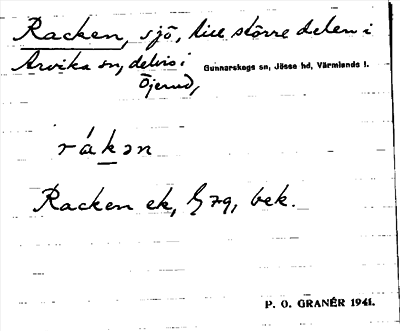 Racken, sjö, till större delen i
Arvika sn, delvis i Gunnarskogs sn, Jösse hd, Värmlands l.
Öjerud,
rákən
Racken ek, bek.
P. O. GRANÉR 1941.